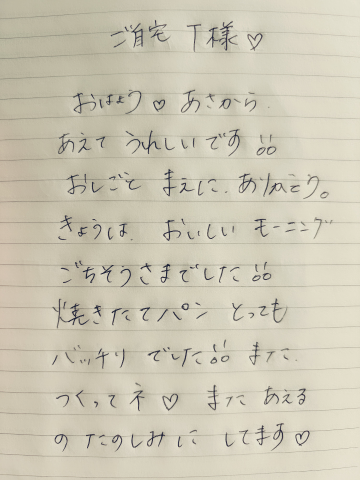 ご自宅 T様♡
おはよう♡ あさから
あえて うれしいです
おしごと まえに、ありがとう。
きょうは、 おいしい モーニング
ごちそうさまでした
焼きたてパン とっても
バッチリ でした また、
つくってネ♡ また あえる
の たのしみに してます♡